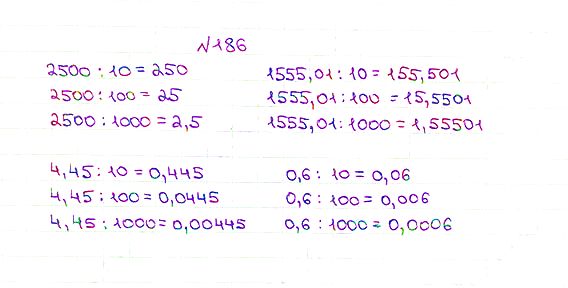 №186
2500 : 10 = 250
2500 : 100 = 25
2500 : 1000 = 2,5
1555,01 : 10 = 155,501
1555,01 : 100 = 15,5501
1555,01 : 1000 = 1,55501
4,45 : 10 = 0,445
4,45 : 100 = 0,0445
4,45 : 1000 = 0,00445
0,6 : 10 = 0,06
0,6 : 100 = 0,006
0,6 : 1000 = 0,0006